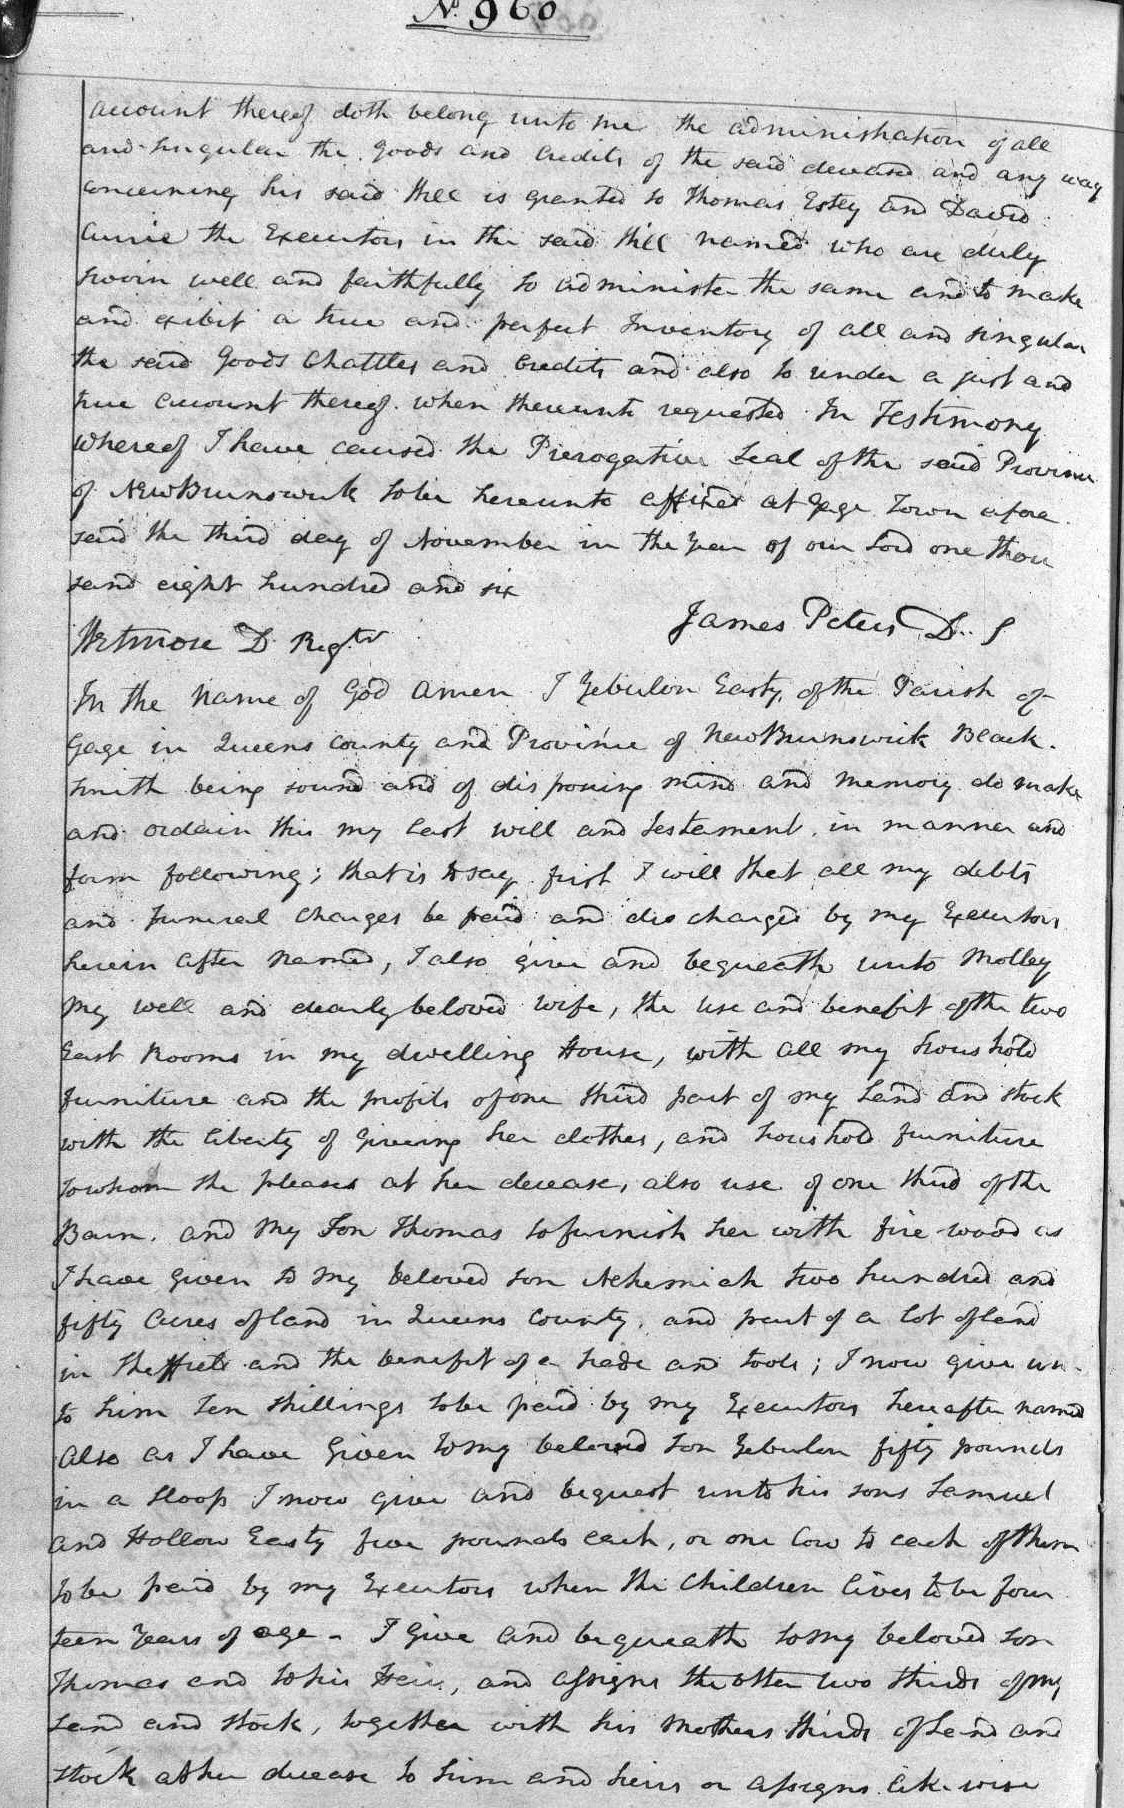 No. 960
account thereof doth belong unto me the administration of all
and Singular the Goods and Credits of the said deceased and any way
concerning his said Will is granted to Thomas Estey and David
Currie the Executors in the said Will named who are duly
sworn well and faithfully to administer the same and to make
and exibit a true and perfect Inventory of all and singular
the said Goods Chattles and Credits and also to render a just and
true account thereof when thereunto requested In Testimony
Whereof I have caused the Prerogative Seal of the said Province
of New Brunswick to be hereunto affixed at Gage Town afore
said the third day of November in the Year of our Lord one thou
sand eight hundred and six
James Peters D. S
Wetmore D Regtr
In the Name of God Amen I Zebulon Easty, of the Parish of
Gage in Queens County and Province of New Brunswick Black
smith being sound and of disposing mind and memory do make
and ordain this my last will and testament in manner and
form following; that is to say first I will that all my debts
and funeral Charges be paid and discharged by my Executors
herein after named, I also give and bequeath unto Molley
my well and dearly beloved wife, the use and benefit of the two
East Rooms in my dwelling House, with all my houshold
furniture and the profits of one third part of my Land and stock
with the liberty of giveing her clothes, and houshold furniture
to whom she pleases at her decease, also use of one third of the
Barn. and my Son Thomas to furnish her with fire wood as
I have given to my beloved son Nehemiah two hundred and
fifty Acres of land in Queens County, and part of a lot of land
in Sheffield and the benefit of a trade and tools; I now give un-
to him ten shillings to be paid by my Executors hereafter named
Also as I have Given to my beloved Son Zebulon fifty pounds
in a Sloop I now give and bequest unto his sons Samuel
and Hollow Easty five pounds each, or one Cow to each of them
to be paid by my Executors when the Children lives to be four
teen Years of age - I Give and bequeath to my beloved son
Thomas and to his Heirs, and assigns the other two thirds of my
Land and stock, together with his Mothers thirds of Land and
stock at her decease to him and heirs or assigns likewise